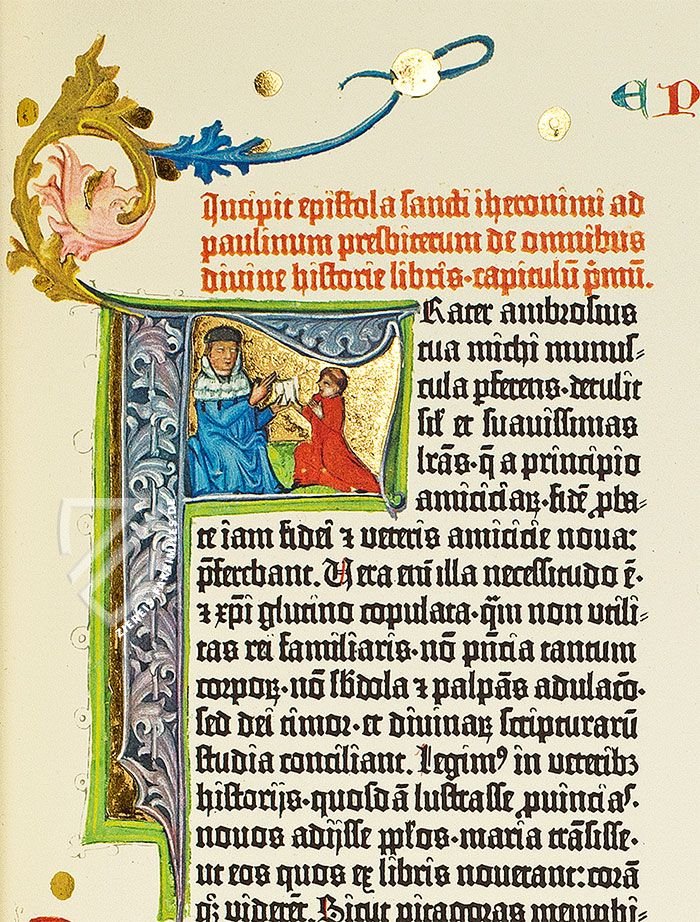 EP
Incipit epistola sancti iheronimi ad
paulinum presbiterum de omnibus
divine historie libris·capitulū p̄mū.
Frater ambrosius
tua michi munus⸗
cula ꝑferens·detulit
sil̄ et suavissimas
lr̄as·q̄ a principio
amiciciaꝝ·fidē ꝓba⸗
te iam fidei ⁊ veteris amicicie nova:
p̄ferebant. Vera em̄ illa necessitudo ē·
⁊ xp̄i glutino copulata·qm̄ non utili⸗
tas rei familiaris·nō pn̄cia tantum
corpoꝝ·nō sb̄dola ⁊ palpās adulacō·
sed dei timor·et divinaꝝ scripturarū
studia conciliant. Legimꝰ in veteribꝫ
historijs·quosdā lustrasse ꝓuincias·
novos adijsse pp̄los·maria trāsisse·
ut eos quos ex libris noverant: corā
qꝫ viderēt. Sicut pitagoras memphi⸗
ZIEREIS FAKSIMILES